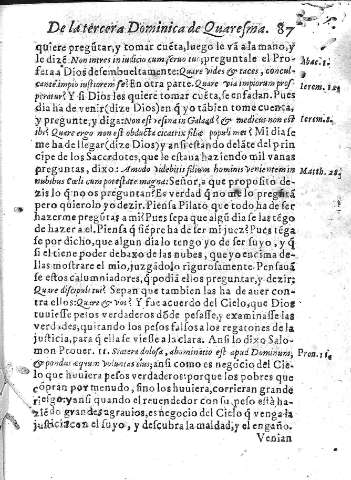 De la tercera Dominica de Quaresma. 87
quiere pregũtar, y tomar cuẽta, luego le và a la mano, y
le dizẽ. Non intres in iudicio cum seruo tuo; preguntale el Pro-
feta a Dios desembueltamente: Quare vides & taces, concul-
cante impio iustiorem se? En otra parte. Quare via impiorum pros-
peratur? Y si Dios les quiere tomar cuẽta, se enfadan. Pues
dia ha de venir (dize Dios) en q̃ yo tãbien tome cuenta,
y pregunte, y diga: Non est resina in Galaad? & medicus non est
ibi? Quare ergo non est obducta cicatrix filiæ populi mei? Mi dia se
me ha de llegar (dize Dios) y ansi estando delãte del prin-
cipe de los Sacerdotes, que le estaua haziendo mil vanas
preguntas, dixo: Amodo videbitis filium hominis venientem in
nubibus Cœli cum potestate magna: Señor, a que proposito de-
zis lo q̃ no os preguntan? Es verdad q̃ no me lo pregũtã
pero quierolo yo dezir. Piensa Pilato que todo ha de ser
hazerme pregũtas a mi? Pues sepa que algũ dia se las tẽgo
de hazer a el. Piensa q̃ siẽpre ha de ser mi juez? Pues tẽga
se por dicho, que algun dia lo tengo yo de ser suyo, y q̃
si el tiene poder debaxo de las nubes, que yo encima de-
llas mostrare el mio, juzgãdolo rigurosamente. Pensauã
se estos calumniadores, q̃ podiã ellos preguntar, y dezir:
Quare discipuli tui? Sepan que tambien las ha de auer con-
tra ellos: Quare & vos? Y fue acuerdo del Cielo, que Dios
tuuiesse pesos verdaderos dõde pesasse, y examinasse las
verdades, quitando los pesos falsos a los regatones de la
justicia, para q̃ ella se viesse a la clara. Ansi lo dixo Salo-
mon Prouer. 11. Statera dolosa, abominatio est apud Dominum,
& pondus æquum voluntas eius; ansi como es negocio del Cie-
lo que huuiera pesos verdaderos: porque los pobres que
cõpran por menudo, sino los huuiera, corrieran grande
riesgo: y ansi quando el reuendedor con su peso està ha-
ziẽdo grandes agrauios, es negocio del Cielo q̃ venga la
justicia con el suyo, y descubra la maldad, y el engaño.
Venian
Abac. 1.
Ierem. 12.
Ierem. 8.
Matth. 28.
Pron. 16.